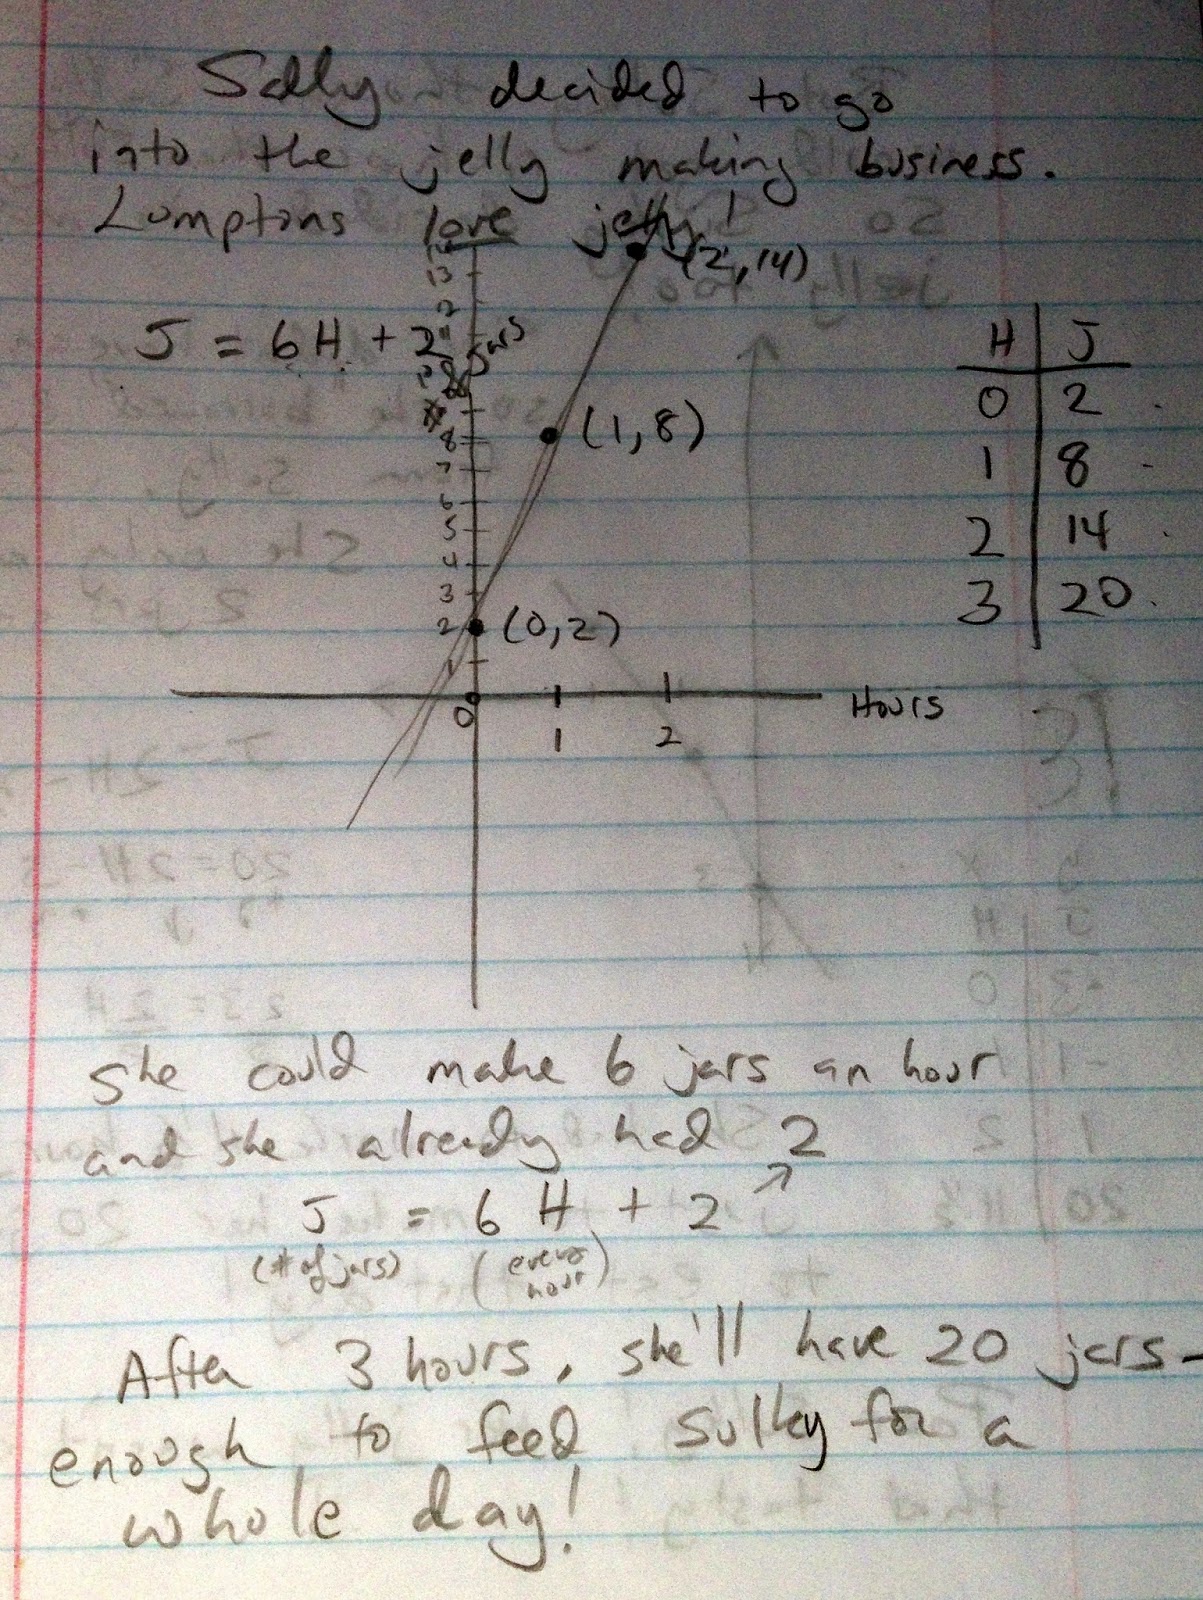 Sally decided to go
into the jelly making business.
Lumptons love jelly!
14
13
(2,14)
J = 6H + 2
jars
H J
0 2
1 8
2 14
3 20
(1,8)
8
7
6
5
4
3
2 (0,2)
1
0
1 2
Hours
She could make 6 jars an hour
and she already had 2
J = 6 H + 2
(# of jars) (every
hour)
After 3 hours, she'll have 20 jars -
enough to feed Sulley for a
whole day!